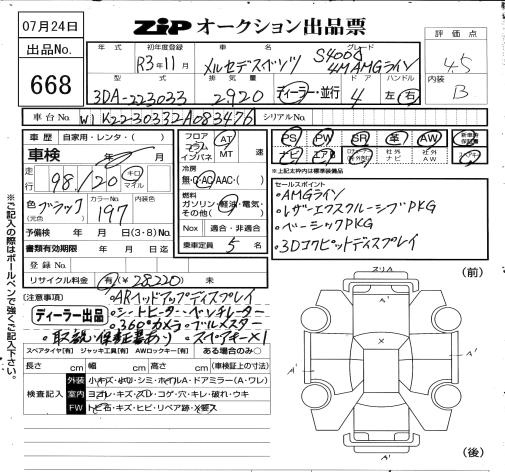 07月24日
ZIP オークション出品票
出品No.
668
年式
初年度登録 R3年11月
車名 メルセデスベンツ
グレード S400d 4M AMGライン
評価点 4.5
型式 3DA-223033
排気量 2920
ディーラー・並行
ドア 4
ハンドル 左・右
内装 B
車台No. W1K2230332A083476
シリアルNo.
車歴 自家用・レンタ・( )
フロア コラム インパネ
AT MT 速
PS PW SR 革 AW 新車時保証書
ナビ エアB 社外ナビ 社外AW
車検 年 月
冷房 無・C・AC・AAC・( )
※上記太枠内は標準装備品
走行 98,120 キロ マイル
燃料 ガソリン・軽油・電気・その他( )
セールスポイント
・AMGライン
・レザーエクスクルーシブPKG
・ベーシックPKG
・3Dコクピットディスプレイ
色 ブラック (元色)
カラーNo. 197
内装色
Nox 適合・非適合
予備検 年 月 日(3・8)No.
書類有効期限 年 月 日迄
乗車定員 5 名
登録No.
リサイクル料金 有(¥28,220) 未
(前)
(注意事項)
・ARヘッドアップディスプレイ
ディーラー出品
・シートヒーター・ベンチレーター
・360°カメラ・ブルメスター
・取説・保証書あり・スペアキー×1
スペアタイヤ[有] ジャッキ工具[有] AWロックキー[有] ある場合のみ○
長さ cm 幅 cm 高さ cm (車検証上の寸法)
検査記入
外装 小キズ・凹・シミ・ホイルA・ドアミラー(A・ワレ)
室内 ヨゴレ・キズ・スレ・コゲ・穴・キレ・破れ・ウキ
FW トビ石・キズ・ヒビ・リペア跡・X要ス
スリA
A'
A'
×
A'
A'
(後)
※ご記入の際はボールペンで強くご記入下さい。